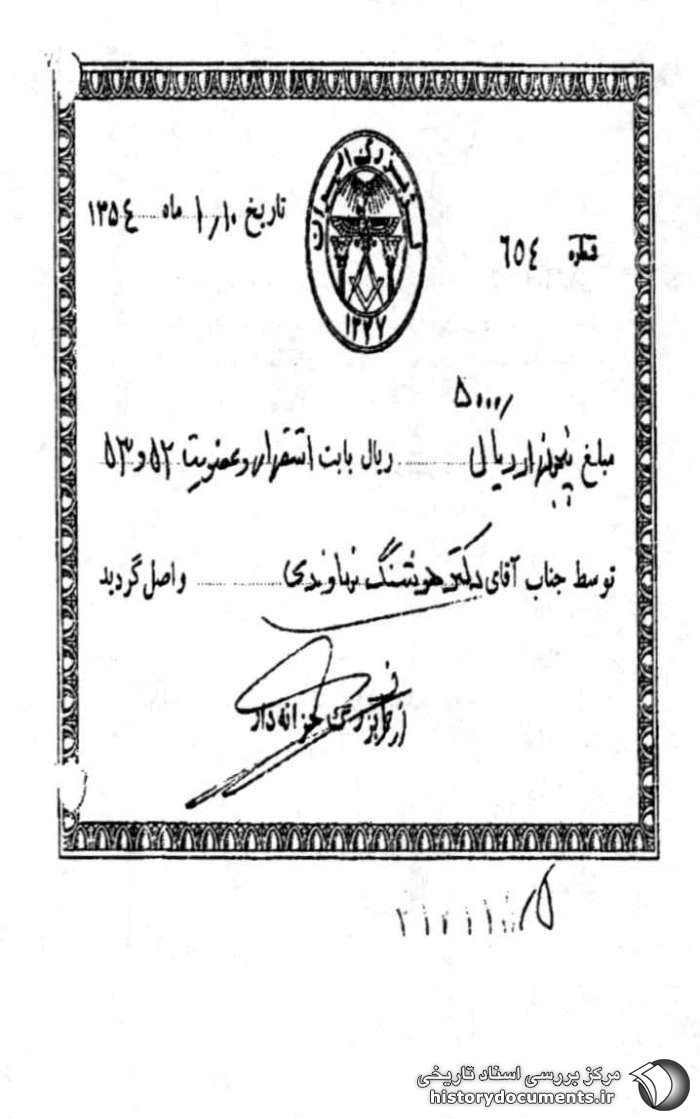 لژ بزرگ ایران
۱۳۴۷
تاریخ ۱/۱۰ ماه ۱۳۵۴
قطره ۶۵۴
۵۰۰۰/
مبلغ پنجهزار ریال ریال بابت استقرار و عضویت ۵۲ و ۵۳
توسط جناب آقای دکتر هوشنگ نهاوندی واصل گردید
از طرف بزرگ خزانه‌دار
مرکز بررسی اسناد تاریخی
historydocuments.ir